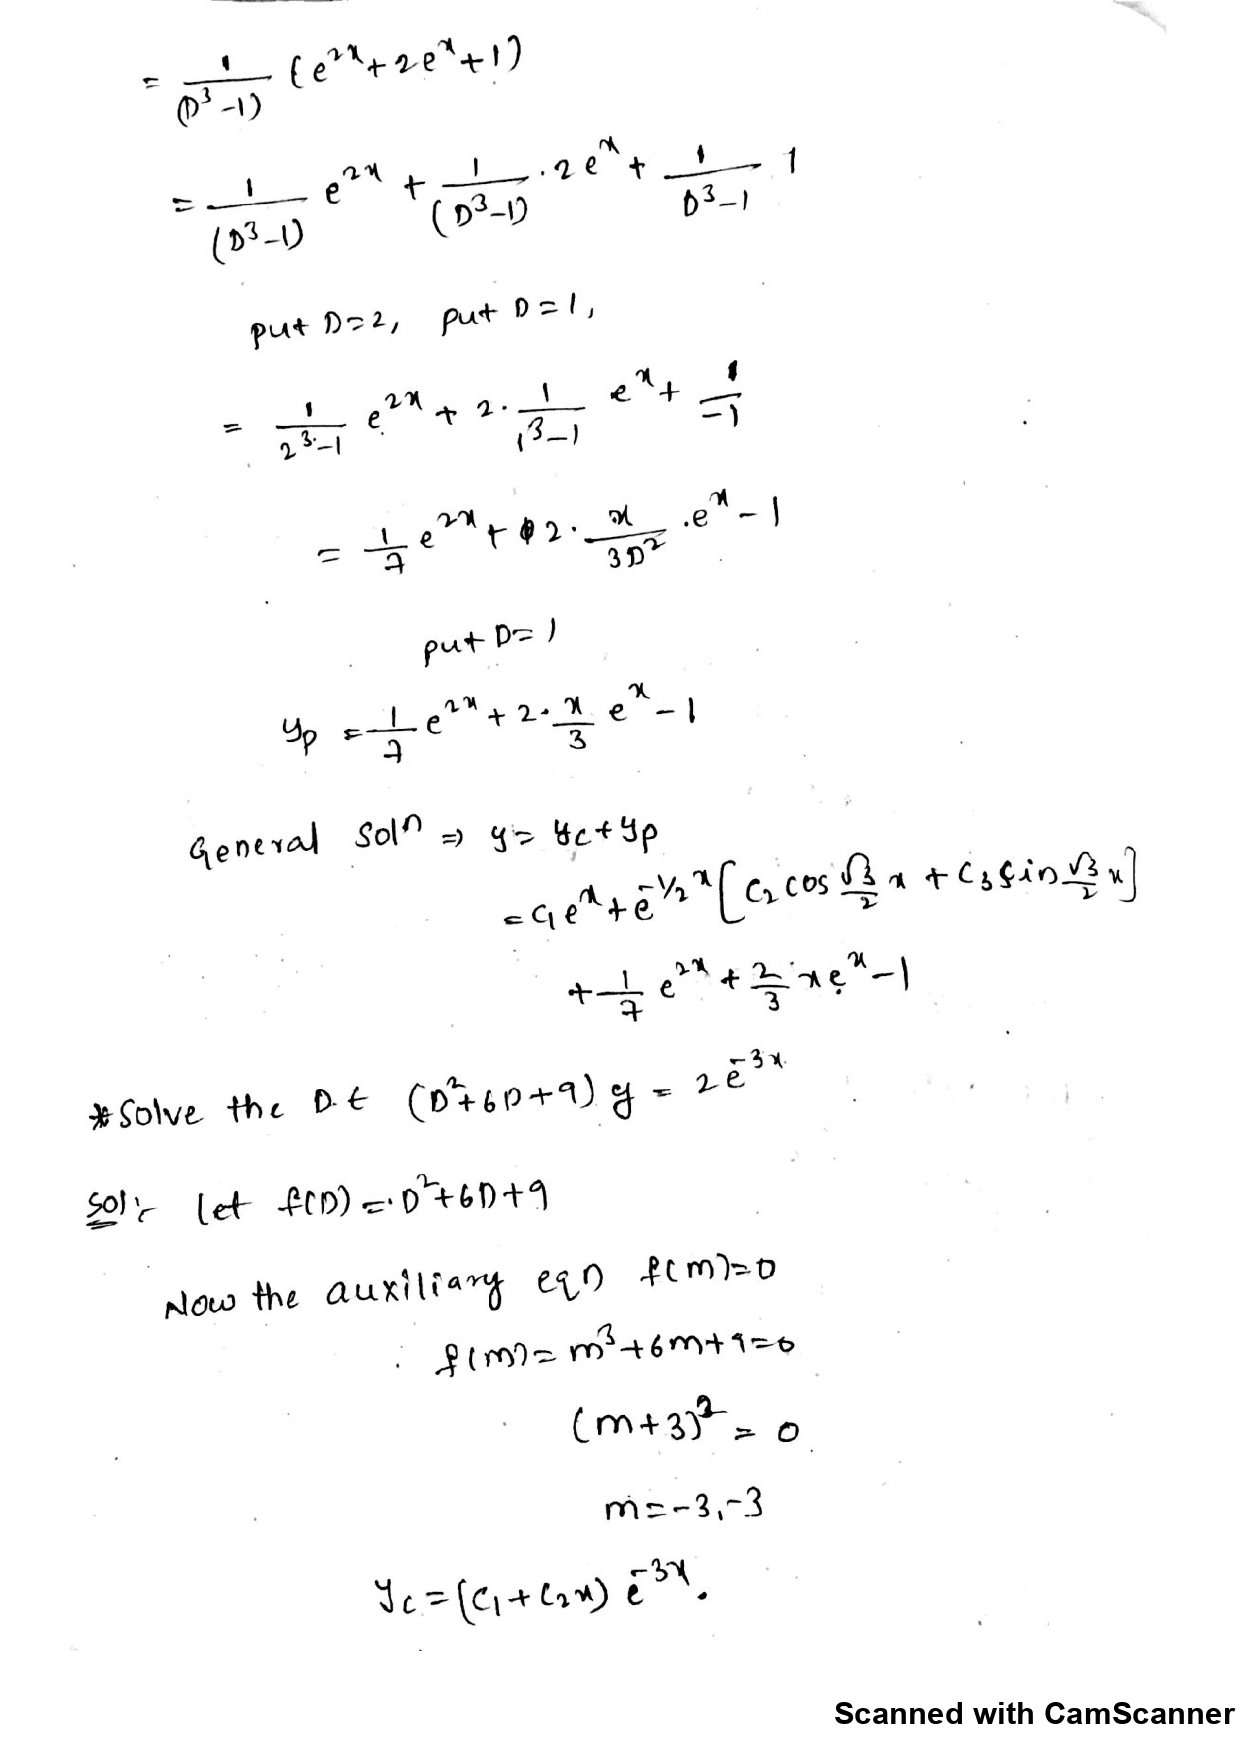 = 1/(D³-1) (e^{2x}+2e^x+1)
= 1/(D³-1) e^{2x} + 1/(D³-1) · 2e^x + 1/(D³-1) 1
put D=2, put D=1,
= 1/(2³-1) e^{2x} + 2· 1/(1³-1) e^x + 1/-1
= 1/7 e^{2x} + 2· x/(3D²) ·e^x - 1
put D=1
y_p = 1/7 e^{2x} + 2· x/3 e^x - 1
General Solⁿ ⇒ y = y_c + y_p
= c₁e^x + e^{-1/2 x} [c₂ cos √3/2 x + c₃ sin √3/2 x]
+ 1/7 e^{2x} + 2/3 x e^x - 1
* Solve the D.E (D²+6D+9) y = 2e^{-3x}
Sol:- let f(D) = D²+6D+9
Now the auxiliary eqn f(m)=0
f(m) = m³+6m+9=0
(m+3)² = 0
m = -3, -3
y_c = (c₁+c₂x) e^{-3x}.
Scanned with CamScanner